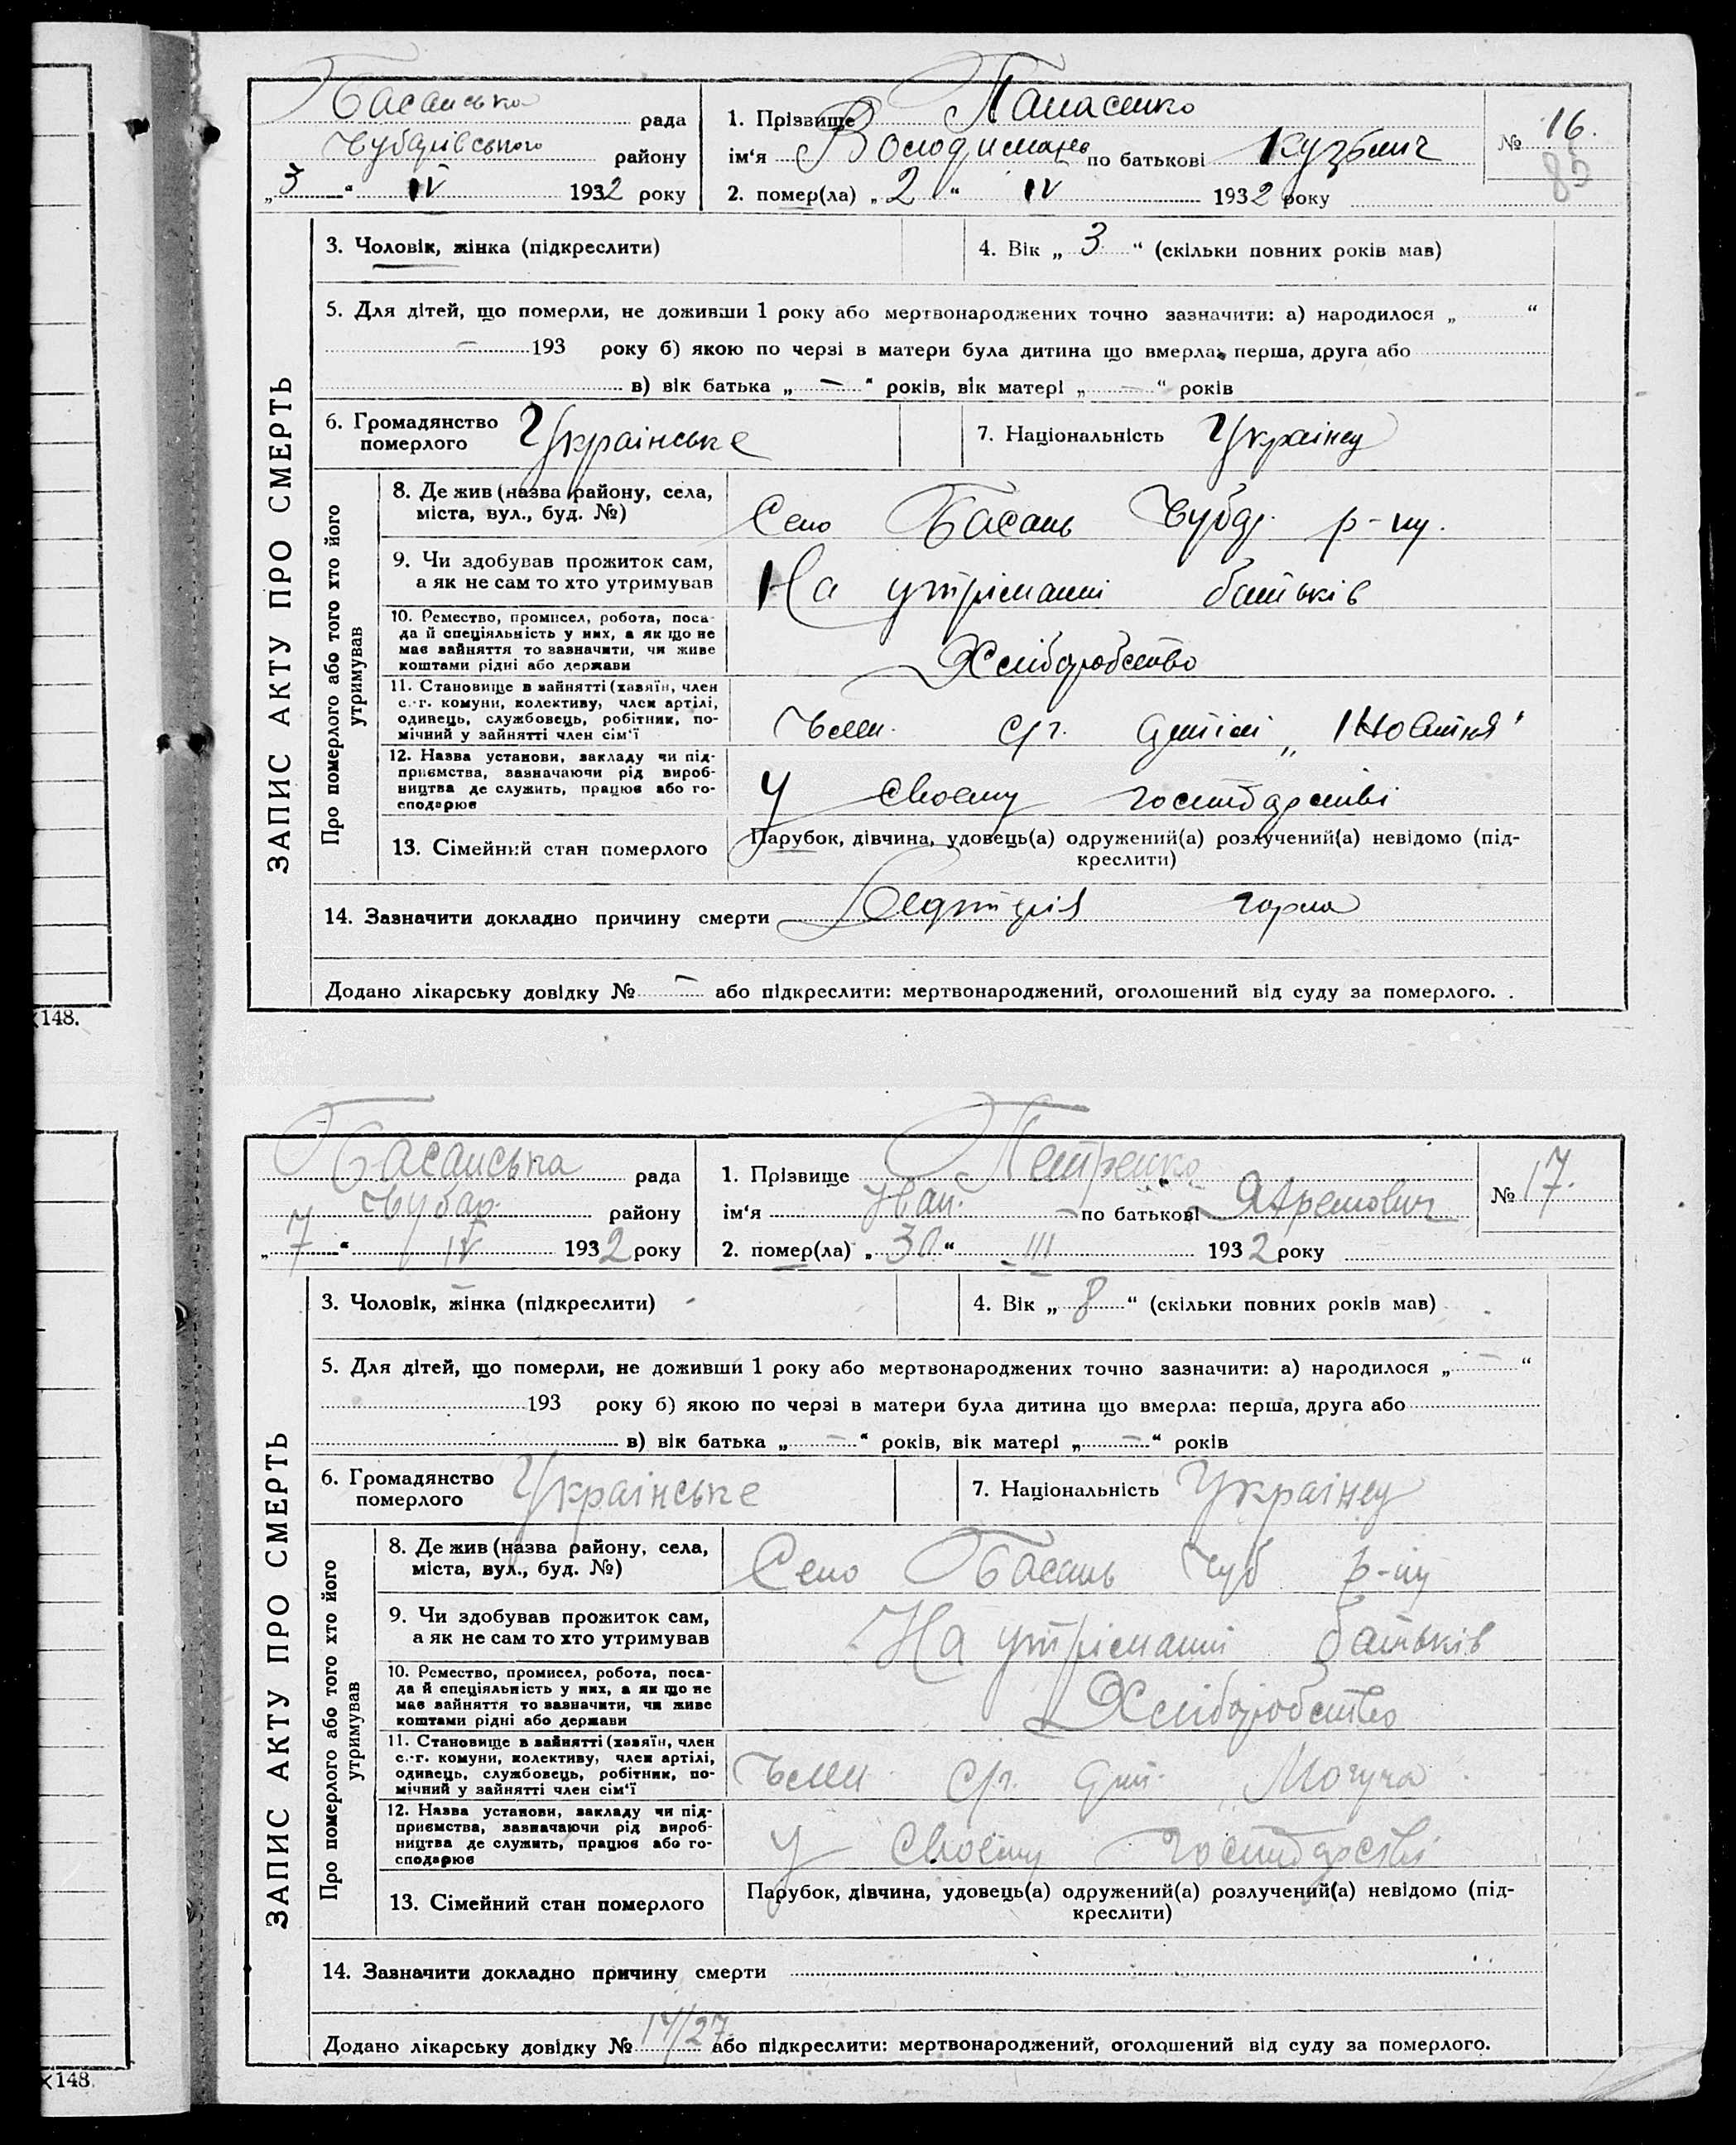 Басанська рада
Чубарівського району
„3“ IV 1932 року
1. Прізвище Панасенко
ім'я Володимир по батькові Кузьмич
2. помер(ла) „2“ IV 1932 року
№ 16.
85
ЗАПИС АКТУ ПРО СМЕРТЬ
3. Чоловік, жінка (підкреслити)
4. Вік „3“ (скільки повних років мав)
5. Для дітей, що померли, не доживши 1 року або мертвонароджених точно зазначити: а) народилося „ “
— 193 року б) якою по черзі в матери була дитина що вмерла: перша, друга або
в) вік батька „—“ років, вік матері „—“ років
6. Громадянство
померлого Українське
7. Національність Українец
Про померлого або того хто його
утримував
8. Де жив (назва району, села,
міста, вул., буд. №)
Село Басань Чубар. р-ну.
9. Чи здобував прожиток сам,
а як не сам то хто утримував
На утріманні батьків
10. Ремество, промисел, робота, поса-
да й спеціяльність у них, а як що не
має зайняття то зазначити, чи живе
коштами рідні або держави
Хліборобство
11. Становище в зайнятті (хазяїн, член
с.-г. комуни, колективу, член артілі,
одинець, службовець, робітник, по-
мічний у зайнятті член сім'ї
Член. с/г. артілі „Жовтня"
12. Назва установи, закладу чи під-
приємства, зазначаючи рід вироб-
ництва де служить, працює або го-
сподарює
У своему господарстві
13. Сімейний стан померлого
Парубок, дівчина, удовець(а) одружений(а) розлучений(а) невідомо (під-
креслити)
14. Зазначити докладно причину смерти горла
Додано лікарську довідку № — або підкреслити: мертвонароджений, оголошений від суду за померлого.
148.
Басанська рада
Чубар. району
„7“ IV 1932 року
1. Прізвище Петренко
ім'я Іван. по батькові Яремович
2. помер(ла) „30.“ III 1932 року
№ 17.
ЗАПИС АКТУ ПРО СМЕРТЬ
3. Чоловік, жінка (підкреслити)
4. Вік „8“ (скільки повних років мав)
5. Для дітей, що померли, не доживши 1 року або мертвонароджених точно зазначити: а) народилося „—“
193 року б) якою по черзі в матери була дитина що вмерла: перша, друга або
в) вік батька „—“ років, вік матері „—“ років
6. Громадянство
померлого Українське
7. Національність Українец
Про померлого або того хто його
утримував
8. Де жив (назва району, села,
міста, вул., буд. №)
Село Басань Чуб р-ну
9. Чи здобував прожиток сам,
а як не сам то хто утримував
На утріманні батьків
10. Ремество, промисел, робота, поса-
да й спеціяльність у них, а як що не
має зайняття то зазначити, чи живе
коштами рідні або держави
Хліборобство
11. Становище в зайнятті (хазяїн, член
с.-г. комуни, колективу, член артілі,
одинець, службовець, робітник, по-
мічний у зайнятті член сім'ї
Член с/г. арт. „Могуча
12. Назва установи, закладу чи під-
приємства, зазначаючи рід вироб-
ництва де служить, працює або го-
сподарює
У своему господарстві
13. Сімейний стан померлого
Парубок, дівчина, удовець(а) одружений(а) розлучений(а) невідомо (під-
креслити)
14. Зазначити докладно причину смерти
Додано лікарську довідку № 14/27 або підкреслити: мертвонароджений, оголошений від суду за померлого.
148